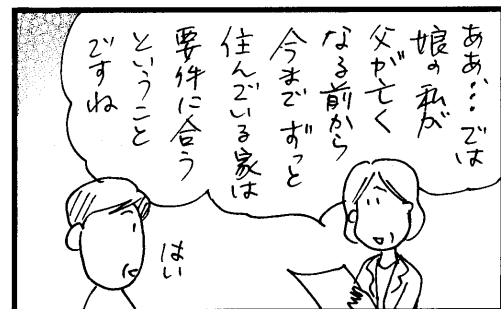 ああ…では
娘の私が
父が亡く
なる前から
今までずっと
住んでいる家は
要件に合う
ということ
ですね
はい